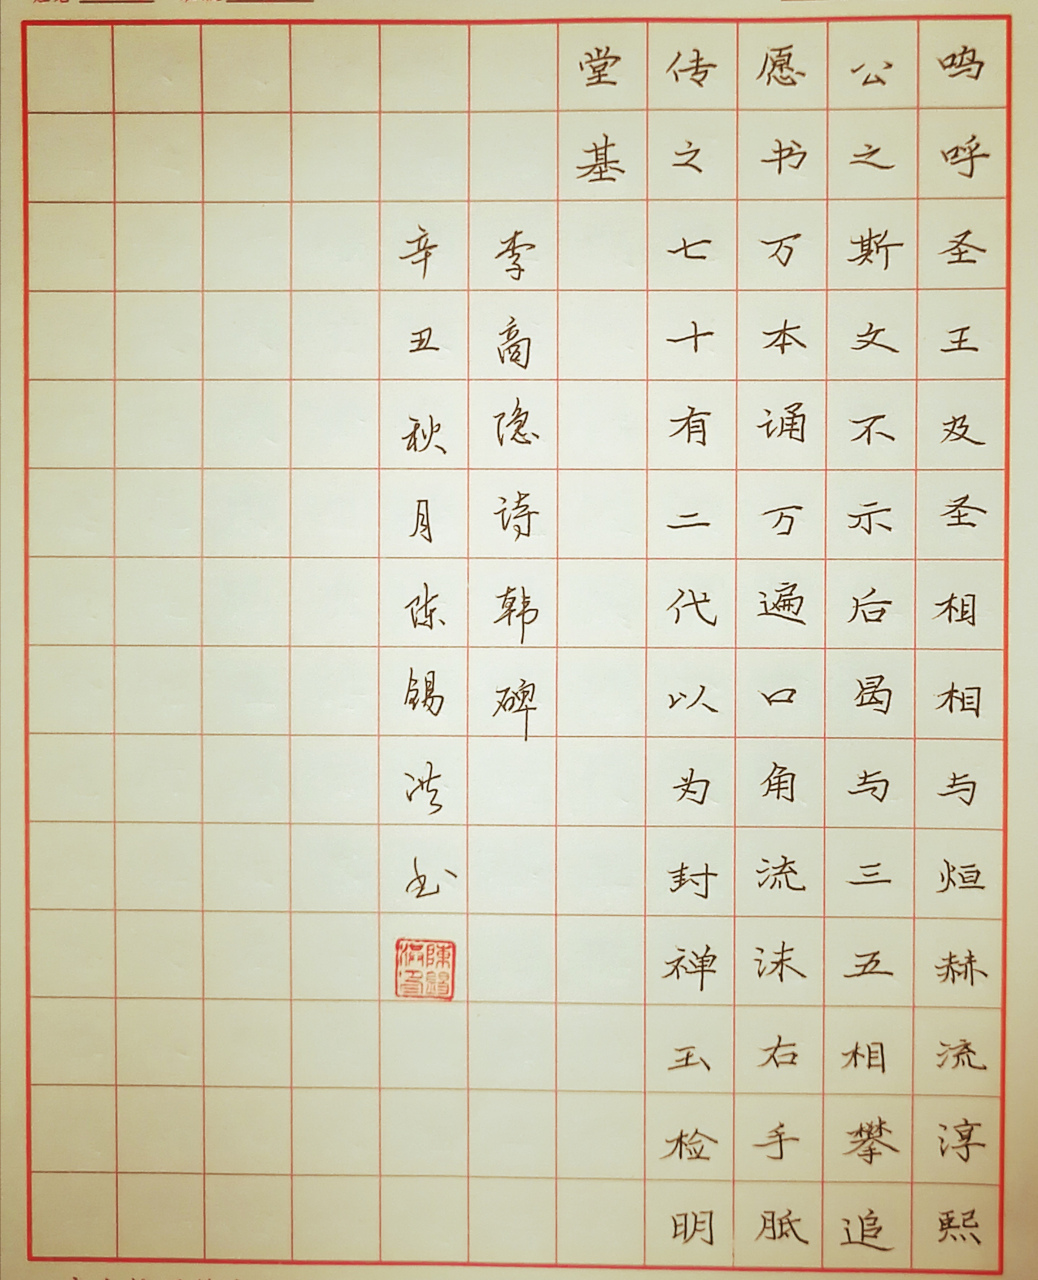 呜呼圣王及圣相相与烜赫流淳熙
公之斯文不示后曷与三五相攀追
愿书万本诵万遍口角流沫右手胝
传之七十有二代以为封禅玉检明
堂基
李商隐诗韩碑
辛丑秋月陈锡洪书